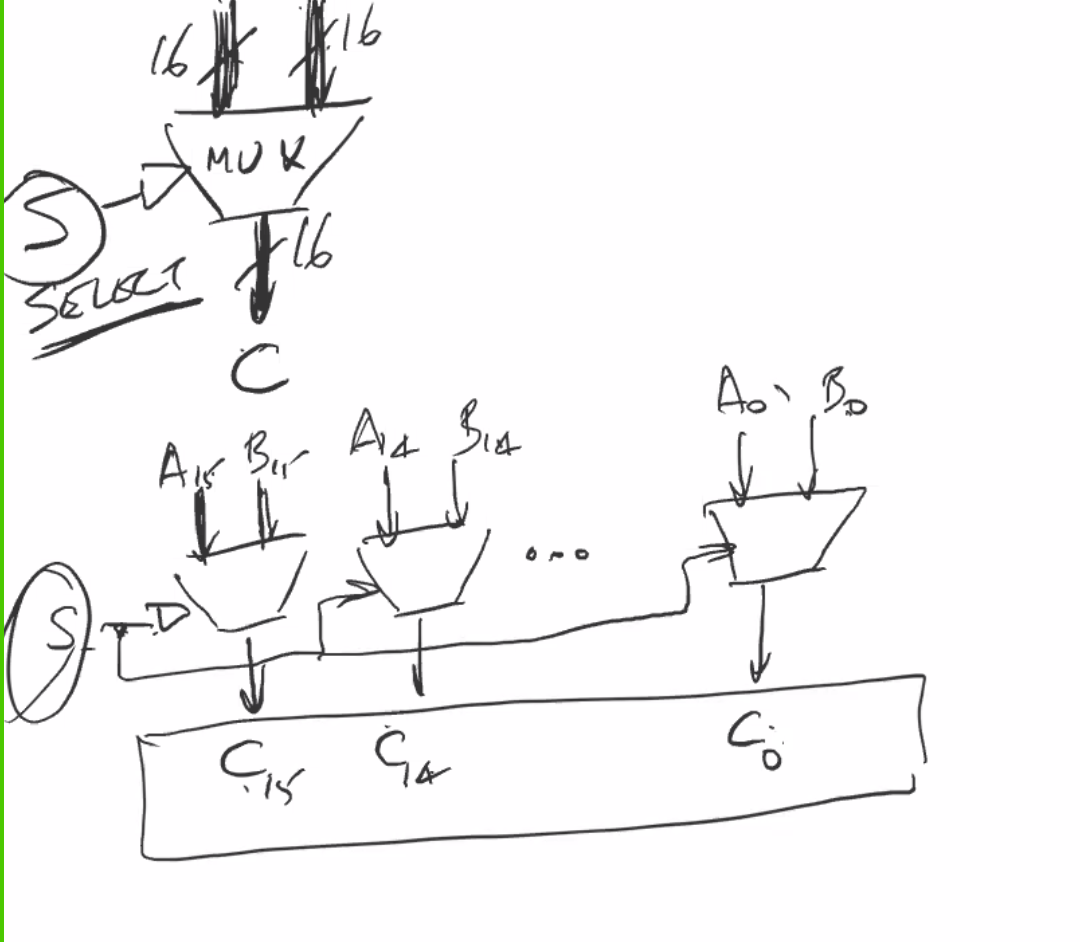 16 16
MUX
S
SELECT
16
C
A15 B15 A14 B14 A0, B0
...
S
C15 C14 C0